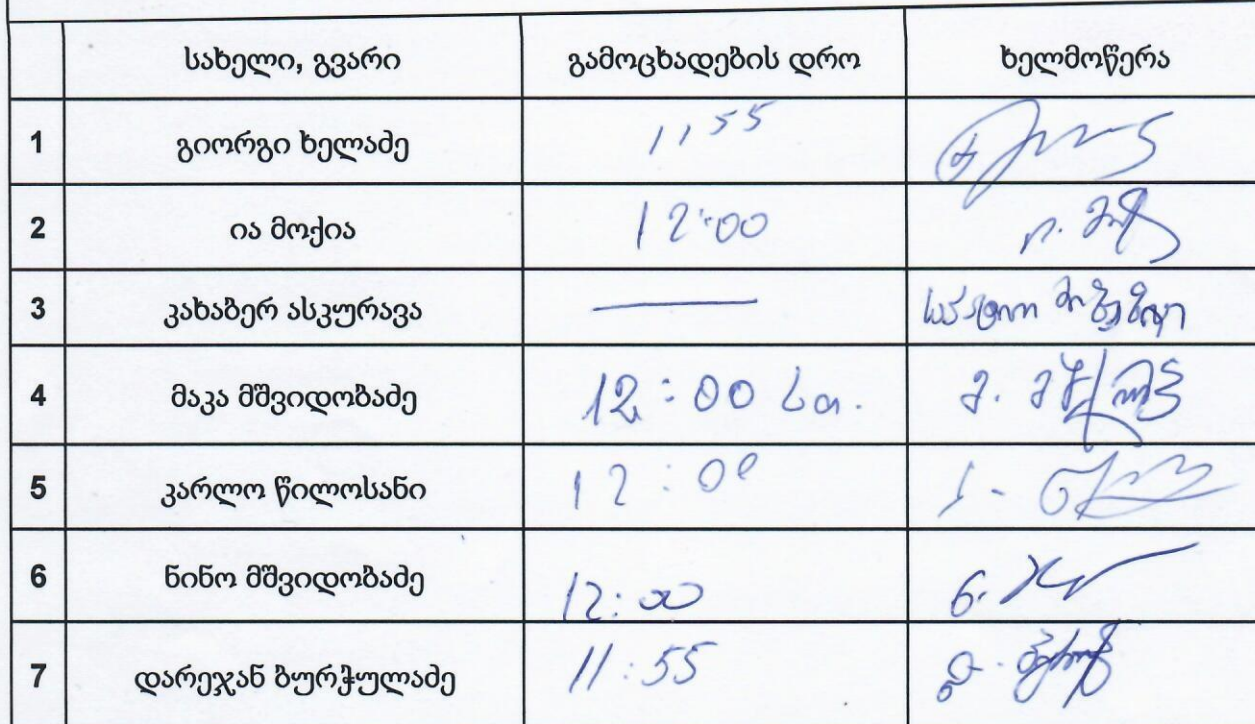 სახელი, გვარი გამოცხადების დრო ხელმოწერა
1 გიორგი ხელაძე 11 55
2 ია მოქია 12:00
3 კახაბერ ასკურავა — საპატიო მიზეზით
4 მაკა მშვიდობაძე 12:00 სთ.
5 კარლო წილოსანი 12:00
6 ნინო მშვიდობაძე 12:00
7 დარეჯან ბურჭულაძე 11:55